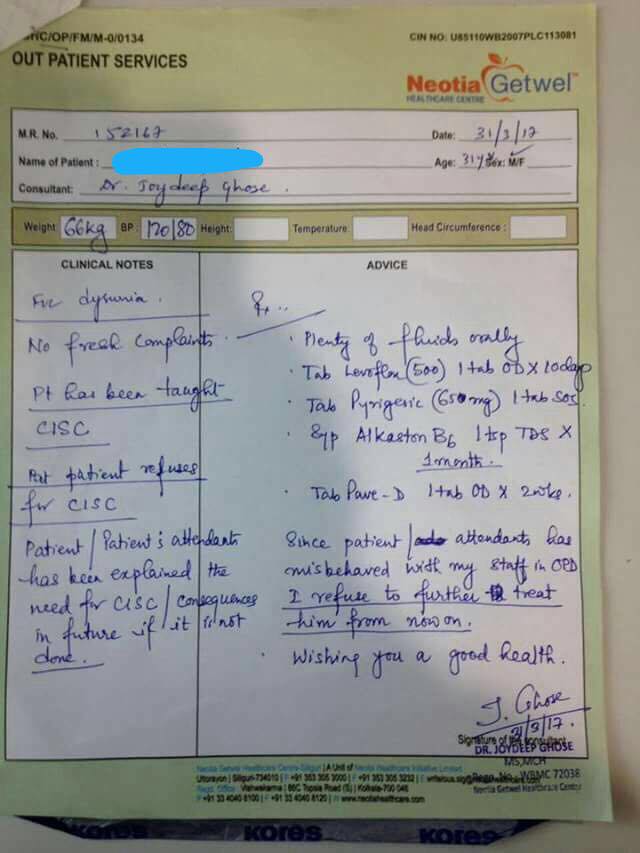 HC/OP/FM/M-0/0134
CIN NO: U85110WB2007PLC113081
OUT PATIENT SERVICES
Neotia Getwel
HEALTHCARE CENTRE
M.R. No. 152167
Date: 31/3/17
Name of Patient :
Age: 31 yrs Sex: M/F
Consultant: Dr. Joydeep Ghose.
Weight: 66kg BP: 120/80 Height: Temperature: Head Circumference :
CLINICAL NOTES
F/u dysuria.
No fresh complaints.
Pt has been taught
CISC
But patient refuses
for CISC
Patient/Patient's attendants
has been explained the
need for CISC/consequences
in future if it is not
done.
ADVICE
Rx..
. Plenty of fluids orally
. Tab Levoflox (500) 1 tab OD X 10days
. Tab Pyrigesic (650mg) 1 tab SOS.
. Syp Alkaston B6 1 tsp TDS X
1 month.
. Tab Pave-D 1 tab OD X 2wks.
Since patient/ attendants has
misbehaved with my staff in OPD
I refuse to further treat
him from now on.
. Wishing you a good health.
J. Ghose
31/3/17.
Signature of the consultant
DR. JOYDEEP GHOSE
MS, MCH
Regn. No. WBMC 72038
Neotia Getwel Healthcare Centre
Neotia Getwel Healthcare Centre-Siliguri | A Unit of Neotia Healthcare Initiative Limited
Uttorayon | Siliguri-734010 | P +91 353 305 3000 | F +91 353 305 3232 | E
Regd. Office : Vishwakarma | 86C Topsia Road (S) | Kolkata-700 046
P +91 33 4040 8100 | F +91 33 4040 8120 | W www.neotiahealthcare.com
KORES KORES KORES